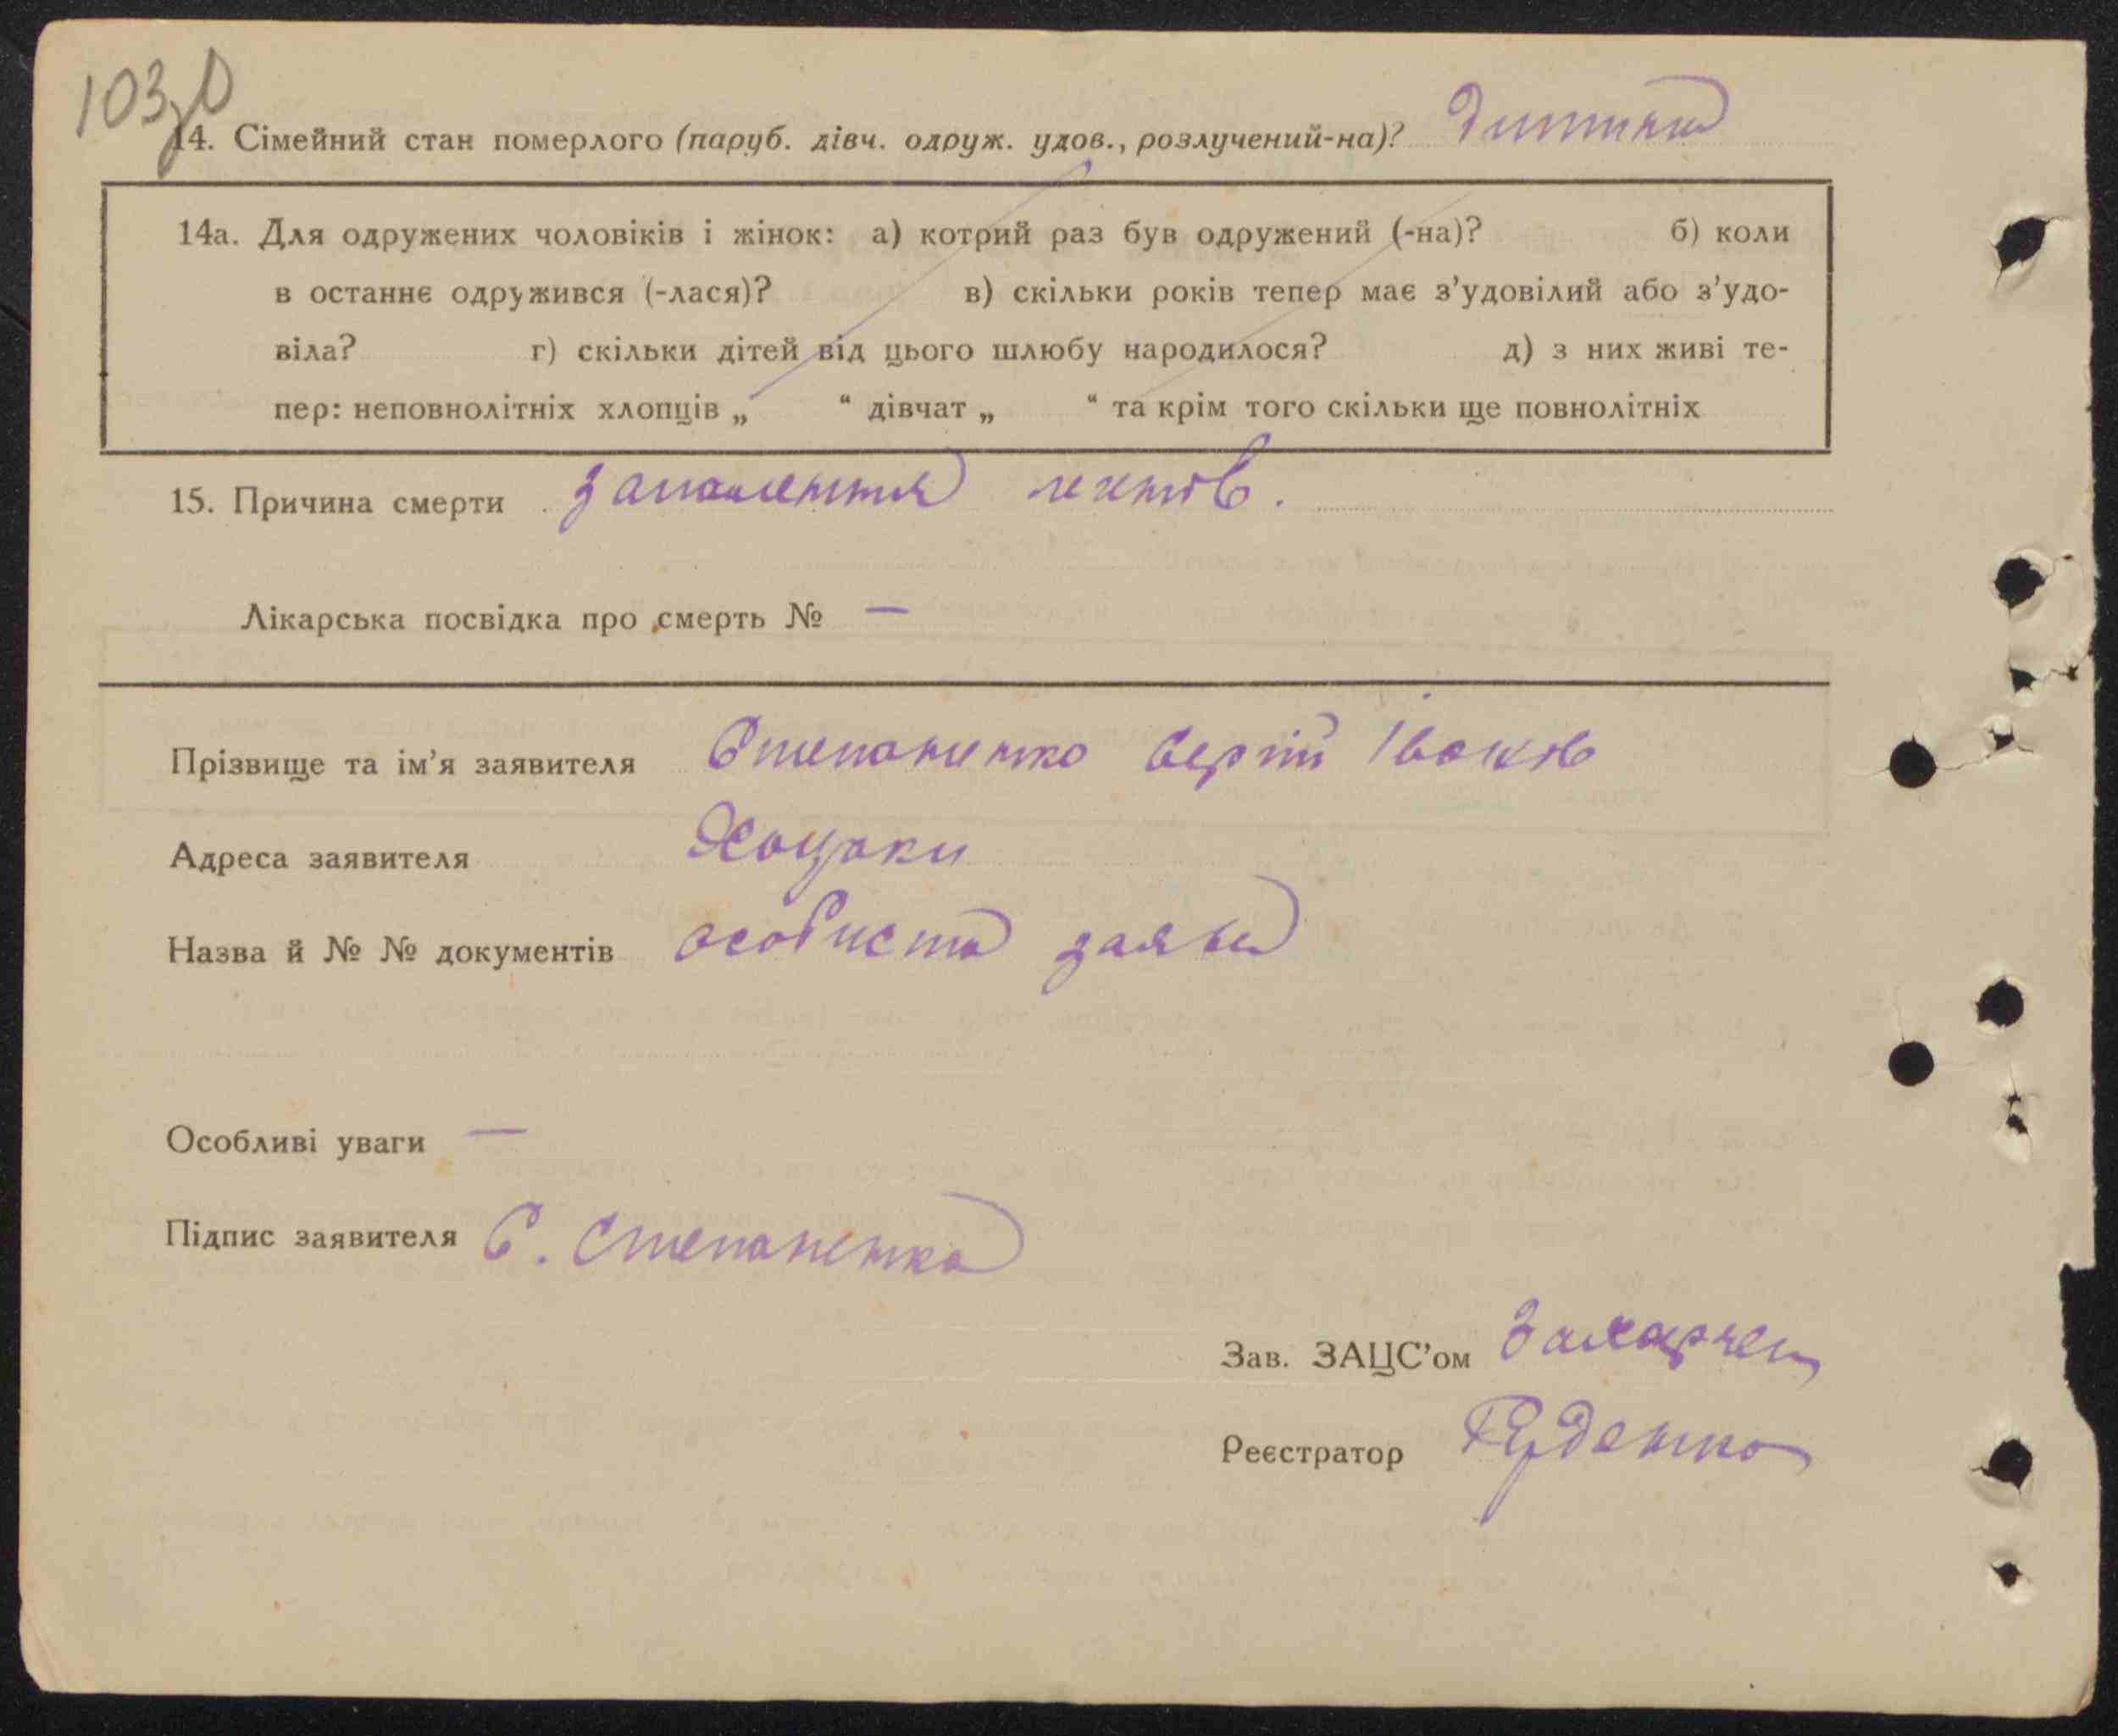 103
14. Сімейний стан померлого (паруб. дівч. одруж. удов., розлучений-на)? дитина
14а. Для одружених чоловіків і жінок: а) котрий раз був одружений (-на)? б) коли
в останнє одружився (-лася)? в) скільки років тепер має з’удовілий або з’удо-
віла? г) скільки дітей від цього шлюбу народилося? д) з них живі те-
пер: неповнолітніх хлопців „ “ дівчат „ “ та крім того скільки ще повнолітніх
15. Причина смерти запалення легенів.
Лікарська посвідка про смерть № —
Прізвище та ім’я заявителя Степаненко Сергій Іванов
Адреса заявителя Хоцьки
Назва й № № документів особиста заява
Особливі уваги —
Підпис заявителя С. Степаненко
Зав. ЗАЦС’ом
Реєстратор Руденко